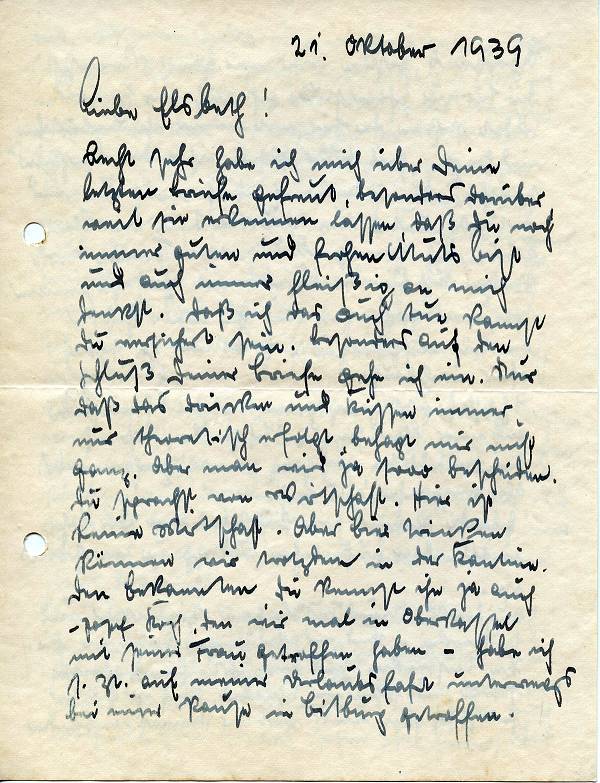 21. Oktober 1939
Liebe Elsbeth!
Recht sehr habe ich mich über Deine
letzten Briefe gefreut, besonders darüber
weil sie erkennen lassen, daß Du noch
immer guten und frohen Muts bist
und auch immer fleißig an mich
denkst. Daß ich das auch tue kannst
Du versichert sein. Besonders auf den
Schluß Deiner Briefe gehe ich ein. Nur
daß das drücken und küssen immer
nur theoretisch erfolgt, behagt mir nicht
ganz. Aber man wird ja sooo bescheiden.
Du sprachst von Wirtschaft. Hier ist
keine Wirtschaft. Aber Bier trinken
können wir trotzdem in der Kantine.
Den Bekannten Du kennst ihn ja auch
- Josef Koch, den wir mal in Oberkassel
mit seiner Frau getroffen haben - habe ich
s. Zt. auf meiner Urlaubsfahrt unterwegs
bei einer Pause in Bitburg getroffen.